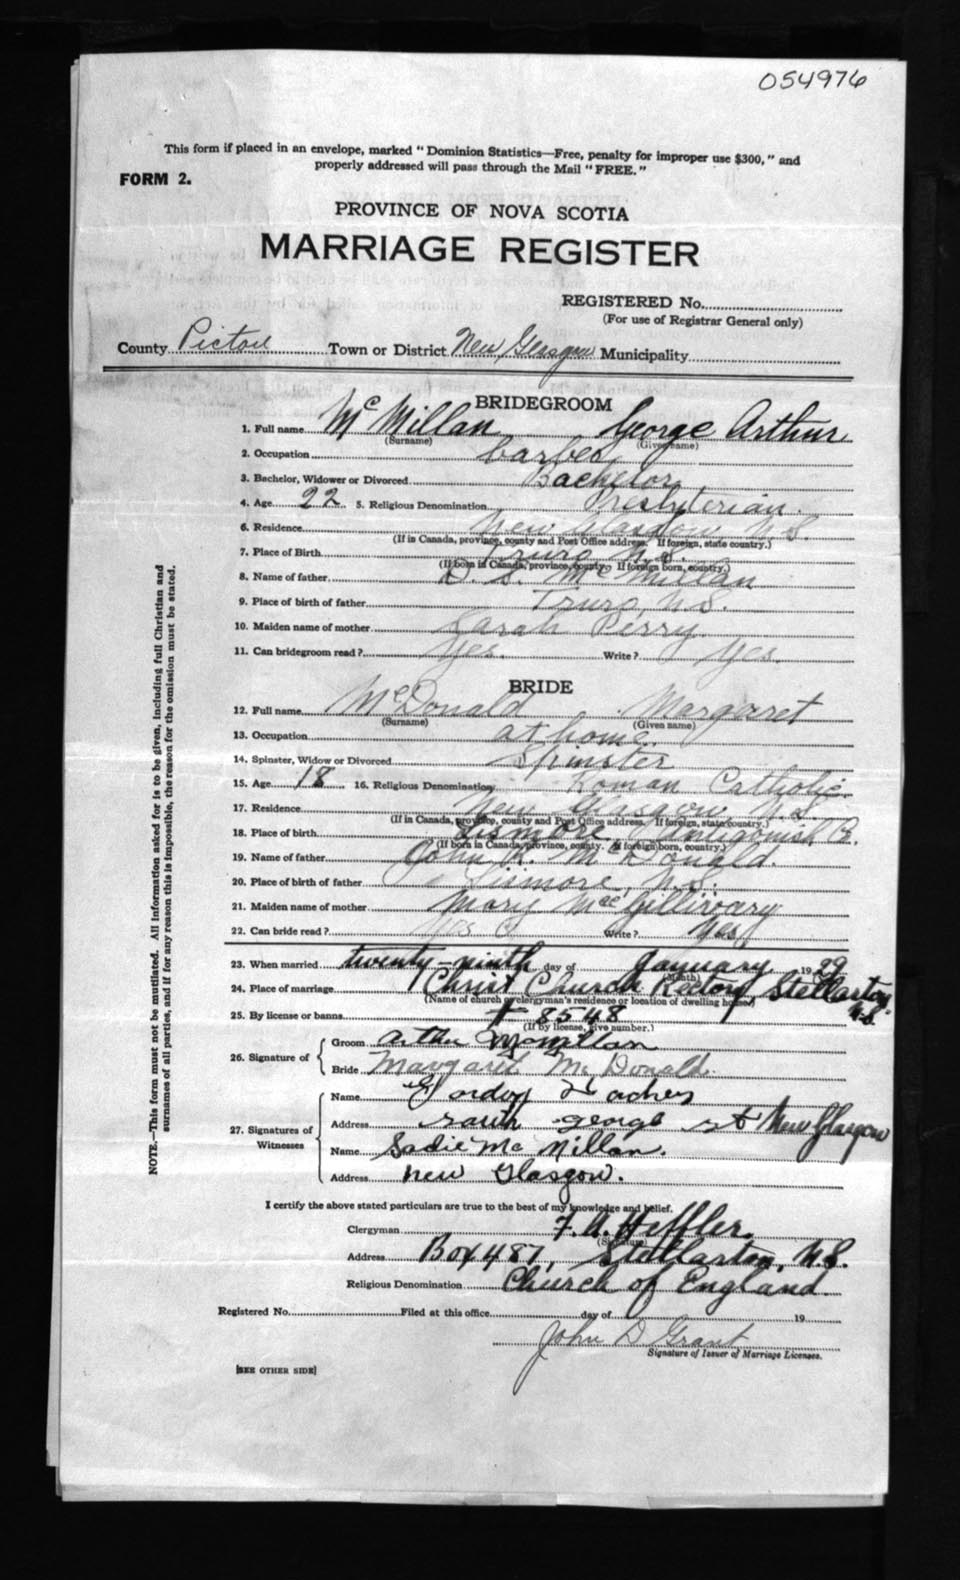 054976
This form if placed in an envelope, marked "Dominion Statistics—Free, penalty for improper use $300," and
properly addressed will pass through the Mail "FREE."
FORM 2.
PROVINCE OF NOVA SCOTIA
MARRIAGE REGISTER
REGISTERED No.
(For use of Registrar General only)
County Pictou Town or District New Glasgow Municipality
BRIDEGROOM
1. Full name McMillan George Arthur
(Surname) (Given name)
2. Occupation barber
3. Bachelor, Widower or Divorced Bachelor
4. Age 22 5. Religious Denomination Presbyterian.
6. Residence New Glasgow N.S.
(If in Canada, province, county and Post Office address. If foreign, state country.)
7. Place of Birth Truro N.S.
(If born in Canada, province, county. If foreign born, country.)
8. Name of father D. S. McMillan
9. Place of birth of father Truro, N.S.
10. Maiden name of mother Sarah Perry
11. Can bridegroom read? Yes. Write? Yes.
BRIDE
12. Full name McDonald Margaret
(Surname) (Given name)
13. Occupation at home
14. Spinster, Widow or Divorced Spinster
15. Age 18 16. Religious Denomination Roman Catholic
17. Residence New Glasgow N.S.
(If in Canada, province, county and Post Office address. If foreign, state country.)
18. Place of birth Lismore Antigonish Co.
(If born in Canada, province, county. If foreign born, country.)
19. Name of father John R. McDonald.
20. Place of birth of father Lismore, N.S.
21. Maiden name of mother Mary MacGillivary
22. Can bride read? Yes Write? Yes
23. When married twenty-ninth day of January 1929
(Month)
24. Place of marriage Christ Church Rectory, Stellarton, N.S.
(Name of church or clergyman's residence or location of dwelling house)
25. By license or banns # 8548
(If by license, give number.)
26. Signature of
Groom Arthur McMillan
Bride Margaret McDonald.
27. Signatures of Witnesses
Name Gordon
Address South George St New Glasgow
Name Sadie McMillan.
Address New Glasgow.
I certify the above stated particulars are true to the best of my knowledge and belief.
Clergyman F. A. Heffler.
(Signature)
Address Box 481, Stellarton, N.S.
Religious Denomination Church of England
Registered No. Filed at this office day of 19
John D Grant
Signature of Issuer of Marriage Licenses.
[SEE OTHER SIDE]
NOTE.—This form must not be mutilated. All information asked for is to be given, including full Christian and
surnames of all parties, and if for any reason this is impossible, the reason for the omission must be stated.